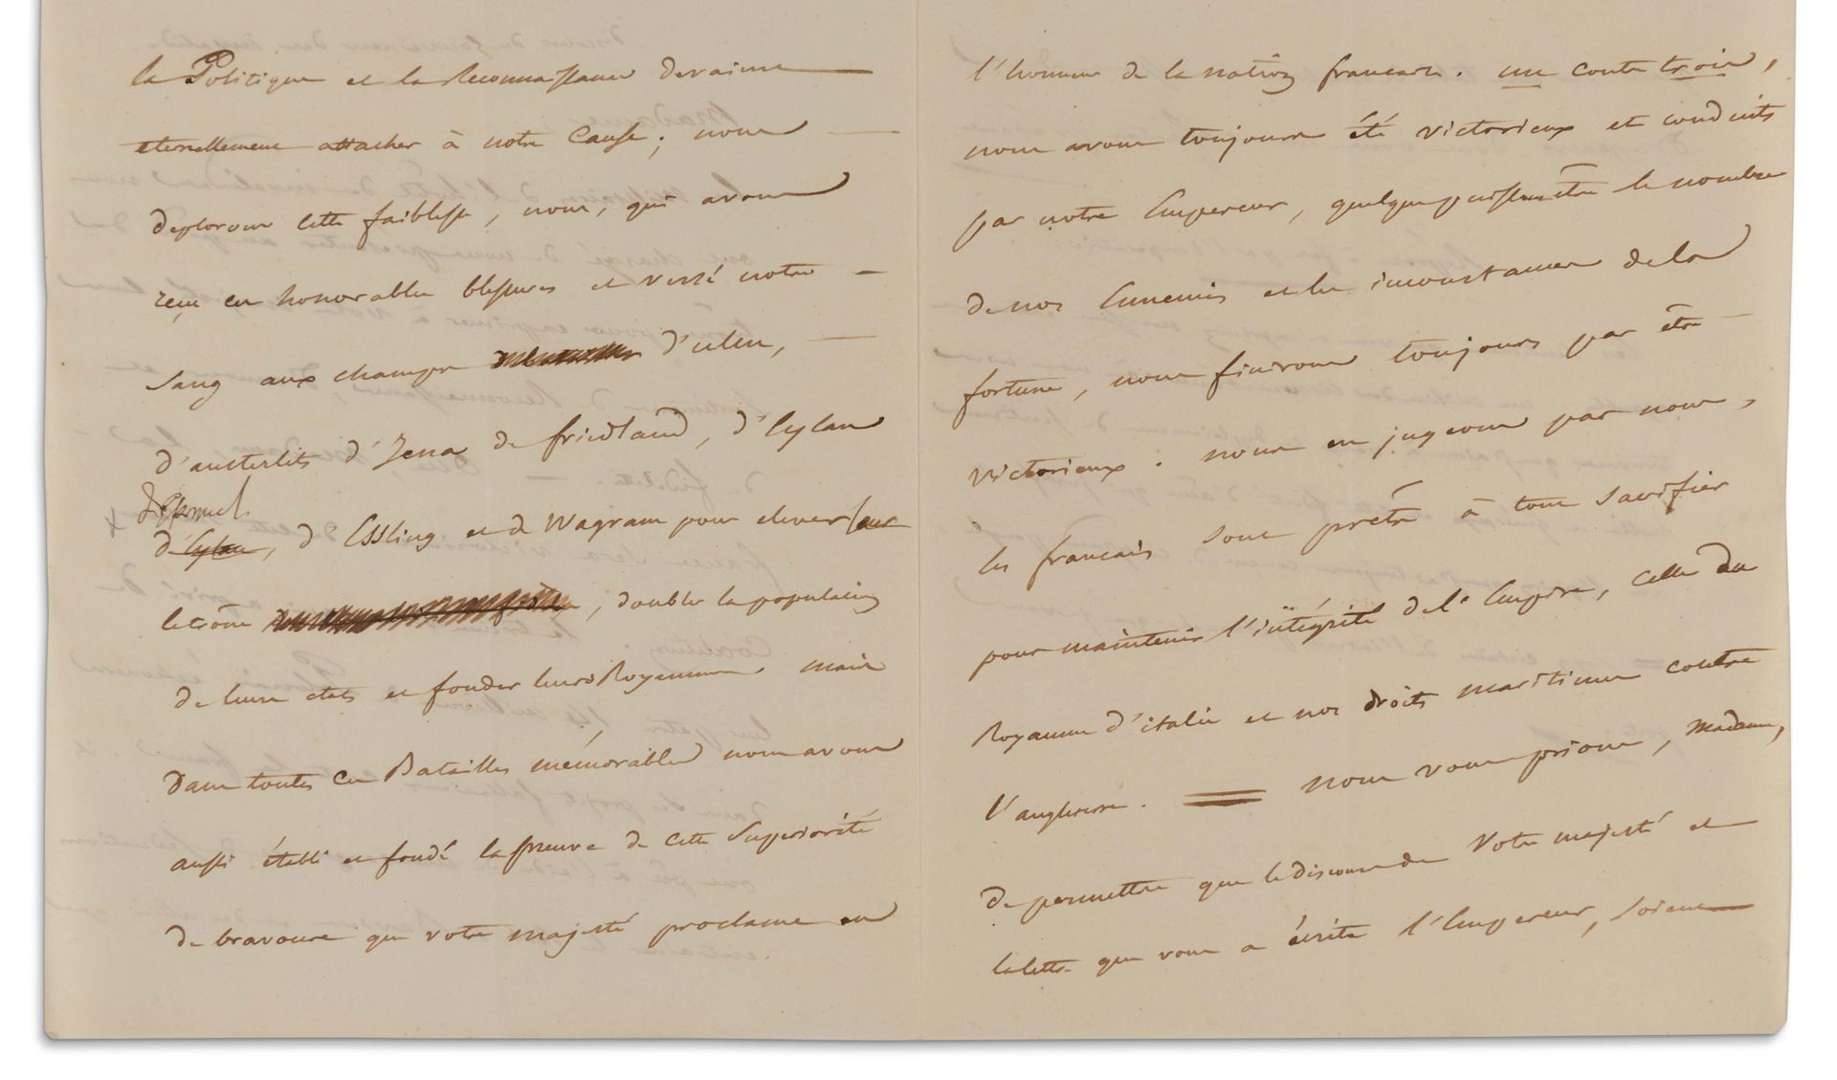 la Politique et la Reconnaissance devaient
eternellement attacher à notre Cause; nous
deplorons cette faiblesse, nous, qui avons
reçu ces honorables blessures et versé notre
Sang aux champs d'ulm,
d'austerlits d'Jena de friedland, d'Eylau
d'Eylau, d'Essling et de Wagram pour elever sur
le trône, doubler la population
de leurs etats et fonder leurs Royaumes mais
Dans toutes ces Batailles mémorables nous avons
aussi établi et fondé la preuve de cette Supériorité
de bravoure que votre majesté proclame en
l'honneur de la nation francaise. un contre trois,
nous avons toujours été victorieux et conduits
par notre Empereur, quelque puissent être le nombre
de nos Ennemis et les inconstances de la
fortune, nous finirons toujours par être
victorieux. nous en jugeons par nous,
les francais sont prêts à tous sacrifier
pour maintenir l'intégrité de l'Empire, celle du
Royaume d'italie et nos droits maritimes contre
l'angleterre. nous vous prions, Madame,
de permettre que le discours de Votre majesté et
la lettre que vous a écrite l'Empereur, soient